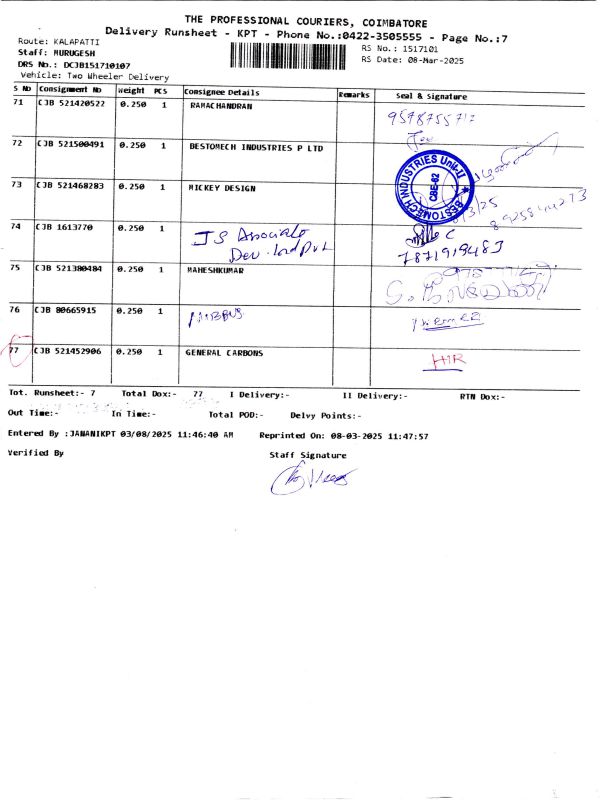 THE PROFESSIONAL COURIERS, COIMBATORE
Delivery Runsheet - KPT - Phone No.:0422-3505555 - Page No.:7
Route: KALAPATTI
RS No.: 1517101
Staff: MURUGESH
RS Date: 08-Mar-2025
DRS No.: DCJB151710107
Vehicle: Two Wheeler Delivery
S No Consignment No Weight PCS Consignee Details Remarks Seal & Signature
71 CJB 521420522 0.250 1 RAMACHANDRAN
9598755712
72 CJB 521500491 0.250 1 BESTOMECH INDUSTRIES P LTD
BESTOMECH INDUSTRIES Unit-II
CBE-62
73 CJB 521468283 0.250 1 MICKEY DESIGN
8/3/25
8925844273
74 CJB 1613770 0.250 1 JS Associate
7871919483
75 CJB 521380484 0.250 1 MAHESHKUMAR
76 CJB 80665915 0.250 1
77 CJB 521452906 0.250 1 GENERAL CARBONS
Tot. Runsheet:- 7 Total Dox:- 77 I Delivery:- II Delivery:- RTN Dox:-
Out Time:- In Time:- Total POD:- Delvy Points:-
Entered By :JANANIKPT 03/08/2025 11:46:40 AM Reprinted On: 08-03-2025 11:47:57
Verified By Staff Signature